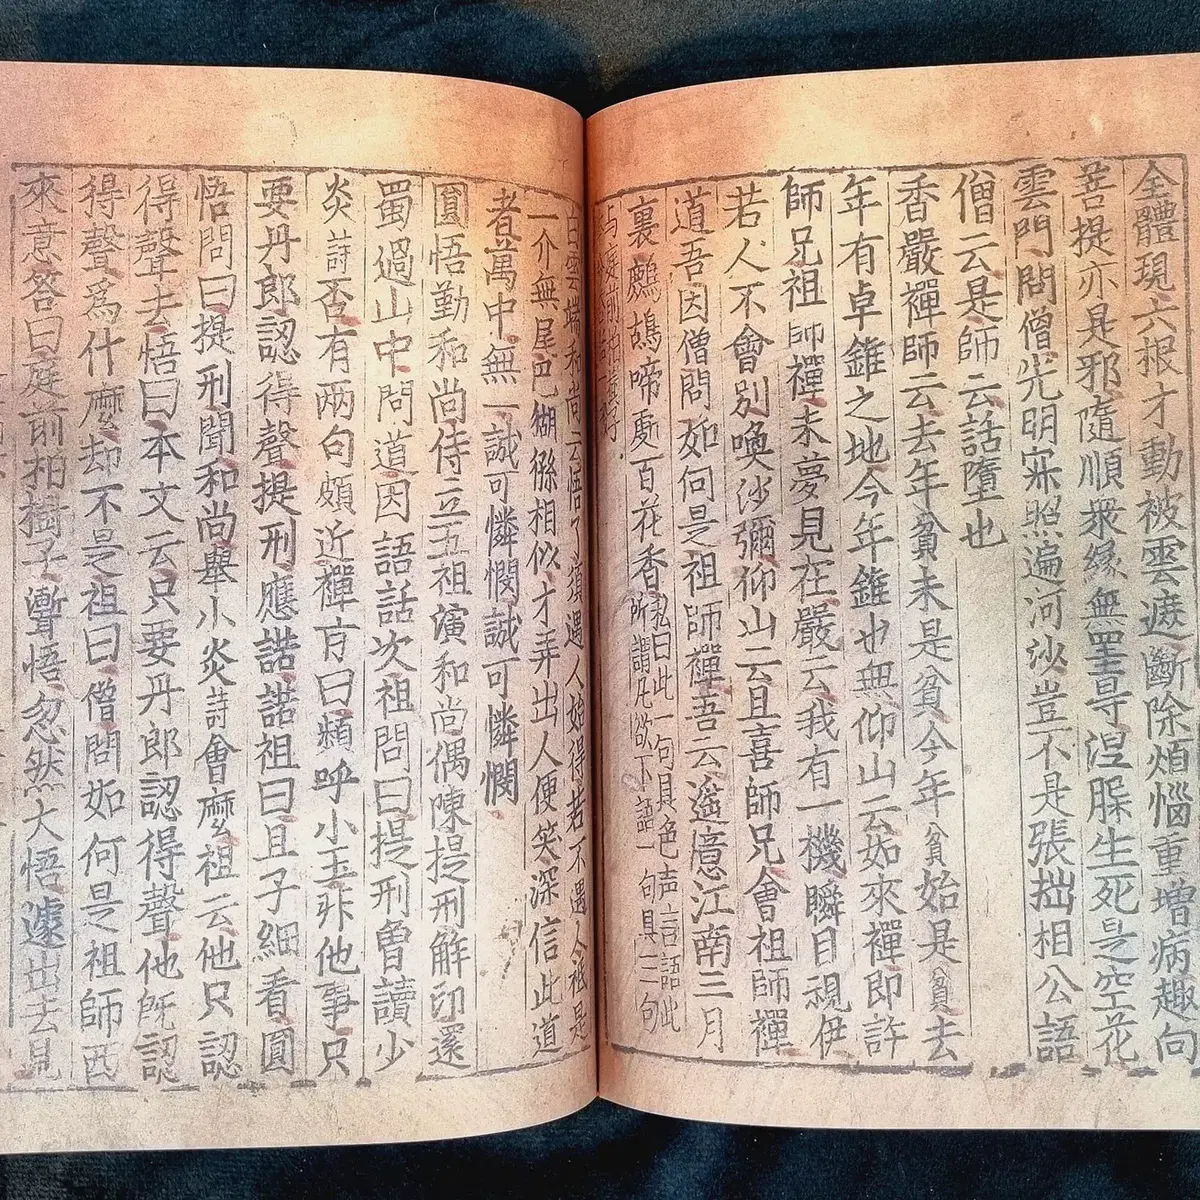 全體現六根才動被雲遮斷除煩惱重增病趣向
菩提亦是邪隨順衆緣無罣导涅槃生死是空花
雲門問僧光明寂照遍河沙豈不是張拙相公語
僧云是師云話墮也
香嚴禪師云去年貧未是貧今年貧始是貧去
年有卓錐之地今年錐也無仰山云如來禪即許
師兄祖師禪未夢見在嚴云我有一機瞬目視伊
若人不會別喚沙彌仰山云且喜師兄會祖師禪
道吾因僧問如何是祖師禪吾云遙憶江南三月
裏鷓鴣啼處百花香私曰此一句具色声言語此
所謂凡欲下語一句具三句
白雲端和尚云悟了須遇人始得若不遇人祗是
一介無尾巴猢猻相似才弄出人便笑深信此道
者萬中無一誠可憐憫誠可憐憫
圓悟勤和尚侍立五祖演和尚偶陳提刑解印還
蜀過山中問道因語話次祖問曰提刑曾讀少
炎詩否有两句頗近禪肓曰頻呼小玉非他事只
要丹郎認得聲提刑應諾諾祖曰且子細看圓
悟問曰提刑聞和尚舉小炎詩會麽祖云他只認
得聲去悟曰本文云只要丹郎認得聲他旣認
得聲爲什麽却不是祖曰僧問如何是祖師西
來意答曰庭前柏樹子漸聾悟忽然大悟遽出去見